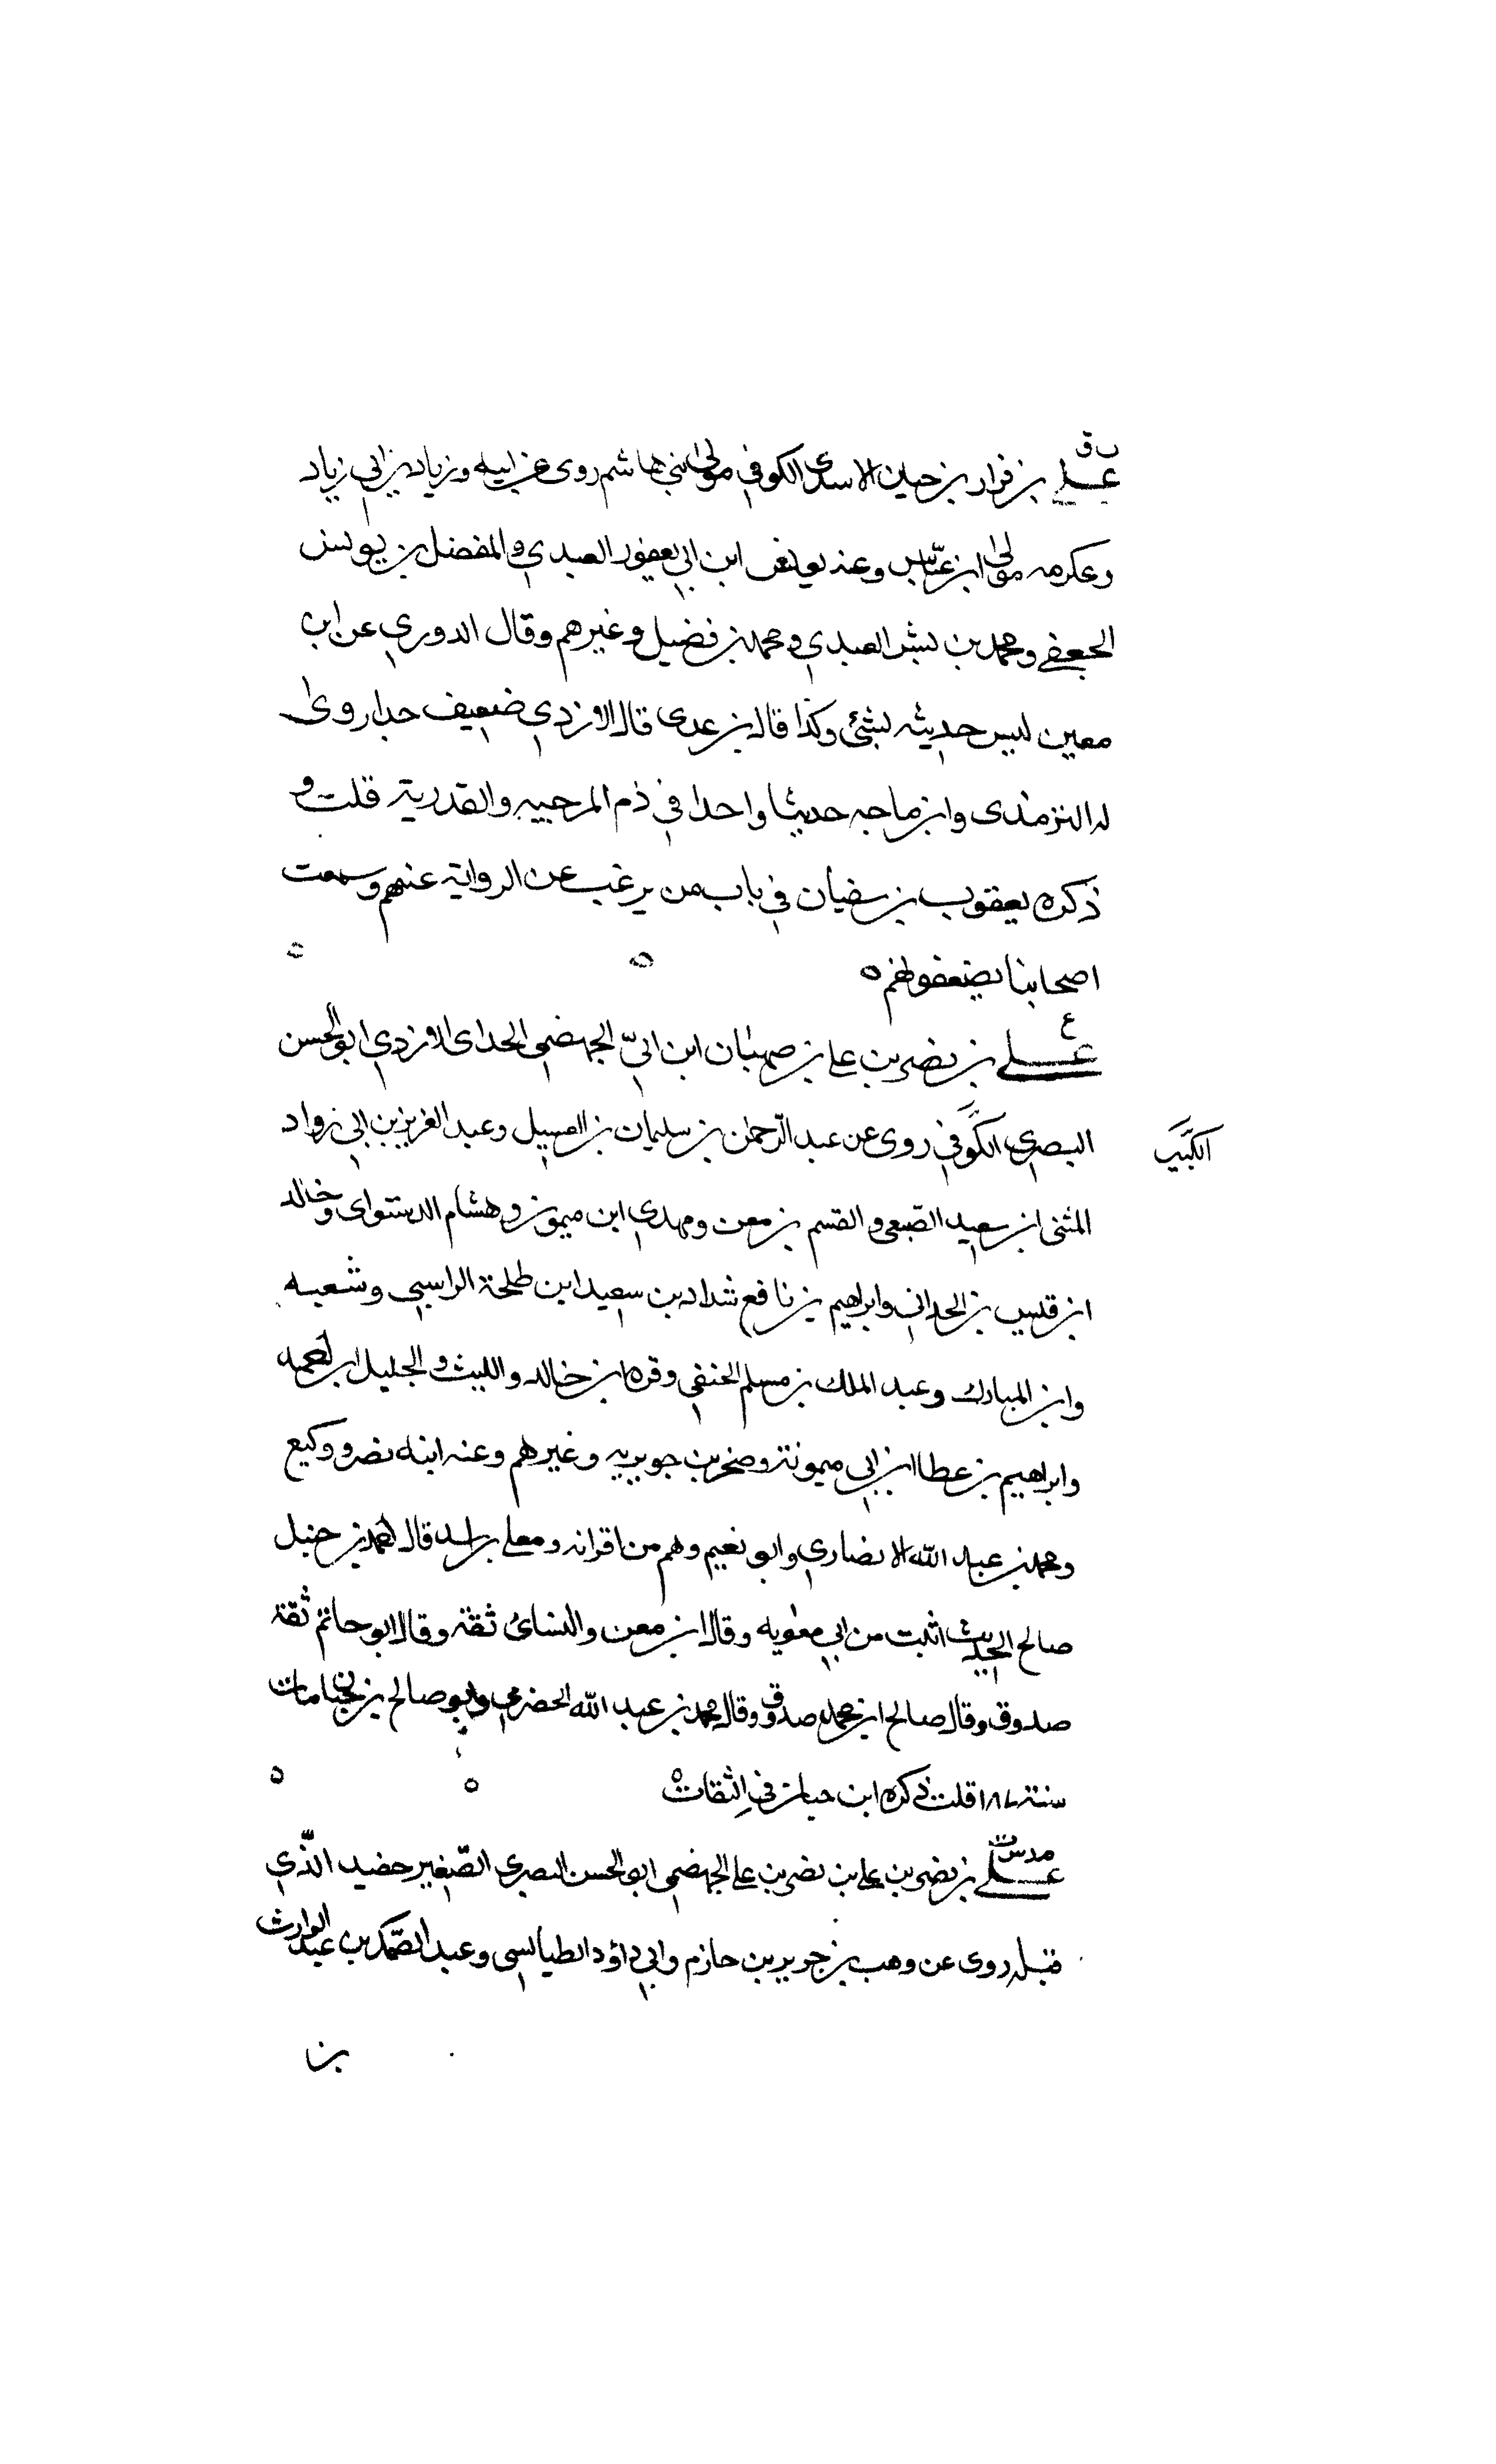 ت ق
علي بن نزار بن حيان الاسدى الكوفي مولى بني هاشم روى عن ابيه وزياد بن ابي زياد
وعكرمه مولى ابن عباس وعنه يونس ابن ابي يعفور العبدي والمفضل بن يونس
الجعفي ومحمد بن بشر العبدي ومحمد بن فضيل وغيرهم وقال الدوري عن ابن
معين ليس حديثه بشئ وكذا قال بن عدى قال الازدي ضعيف جدا روى
له الترمذى وابن ماجه حديثا واحدا في ذم المرجيه والقدرية قلت و
ذكره يعقوب بن سفيان في باب من يرغب عن الرواية عنهم وسمعت
اصحابنا يضعفونهم
ع
علي بن نصر بن علي بن صهبان ابن ابيّ الجهضمى الحداى الازدي ابو الحسن
البصري الكوفي روى عن عبد الرّحمن بن سليمان بن الغسيل وعبد العزيز بن ابي رواد
الكبير
المثنى ابن سعيد الضّبعى والقسم بن معن ومهدي ابن ميمون وهشام الدستواى وخالد
ابن قيس بن الحداني وابراهيم بن نافع شداد بن سعيد ابن طلحة الراسبى وشعبه
وابن المبارك وعبد الملك بن مسلم الحنفي وقره ابن خالد والليث والجليل ابن
وابراهيم بن عطا ابن ابي ميمونة وصخر بن جويريه وغيرهم وعنه ابنه نصر ووكيع
ومحمد بن عبد الله الانصاري وابو نعيم وهم من اقرانه ومعلى بن اسد قال احمد بن حنبل
صالح الحديث اثبت من ابي معويه وقال ابن معن والنسائ ثقة وقال ابو حاتم ثقة
صدوق وقال صالح ابن محمد صدوق وقال محمد بن عبد الله الحضرمي وابو صالح بن مات
سنة ١٨٧ قلت ذكره ابن حبان في الثقات
م د س ت
علي بن نصر بن علي بن نصر بن علي الجهضمى ابو الحسن البصري الصّغير حفيد الّذي
قبله روى عن وهب بن جرير بن حازم وابي داؤد الطيالسى وعبد الصّمد بن عبد الوارث
بن